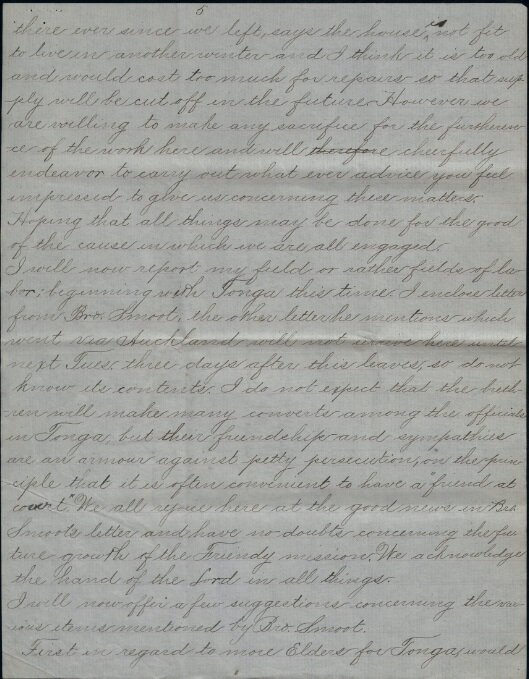 5
there ever since we left, says the house is not fit
to live in another winter and I think it is too old
and would cost too much for repairs so that sup-
ply will be cut off in the future. However we
are willing to make any sacrifice for the furtheren-
ce of the work here and will therefore cheerfully
endeavor to carry out what ever advice you feel
impressed to give us concerning these matters.
Hoping that all things may be done for the good
of the cause in which we are all engaged.
I will now report my field or rather fields of la-
bor; beginning with Tonga this time. I enclose letter
from Bro. Smoot, the other letter he mentions which
went via Auckland will not arrive here until
next Tues. three days after this leaves, so do not
know its contents. I do not expect that the breth-
ren will make many converts among the officials
in Tonga, but their friendship and sympathies
are an armour against petty persecution, "on the prin-
ciple that it is often convenient to have a friend at
court." We all rejoice here at the good news in Bro.
Smoot's letter and have no doubts concerning the fu-
ture growth of the Friendy mission. We acknowledge
the hand of the Lord in all things.
I will now offer a few suggestions concerning the var-
ious items mentioned by Bro. Smoot.
First in regard to more Elders for Tonga, would